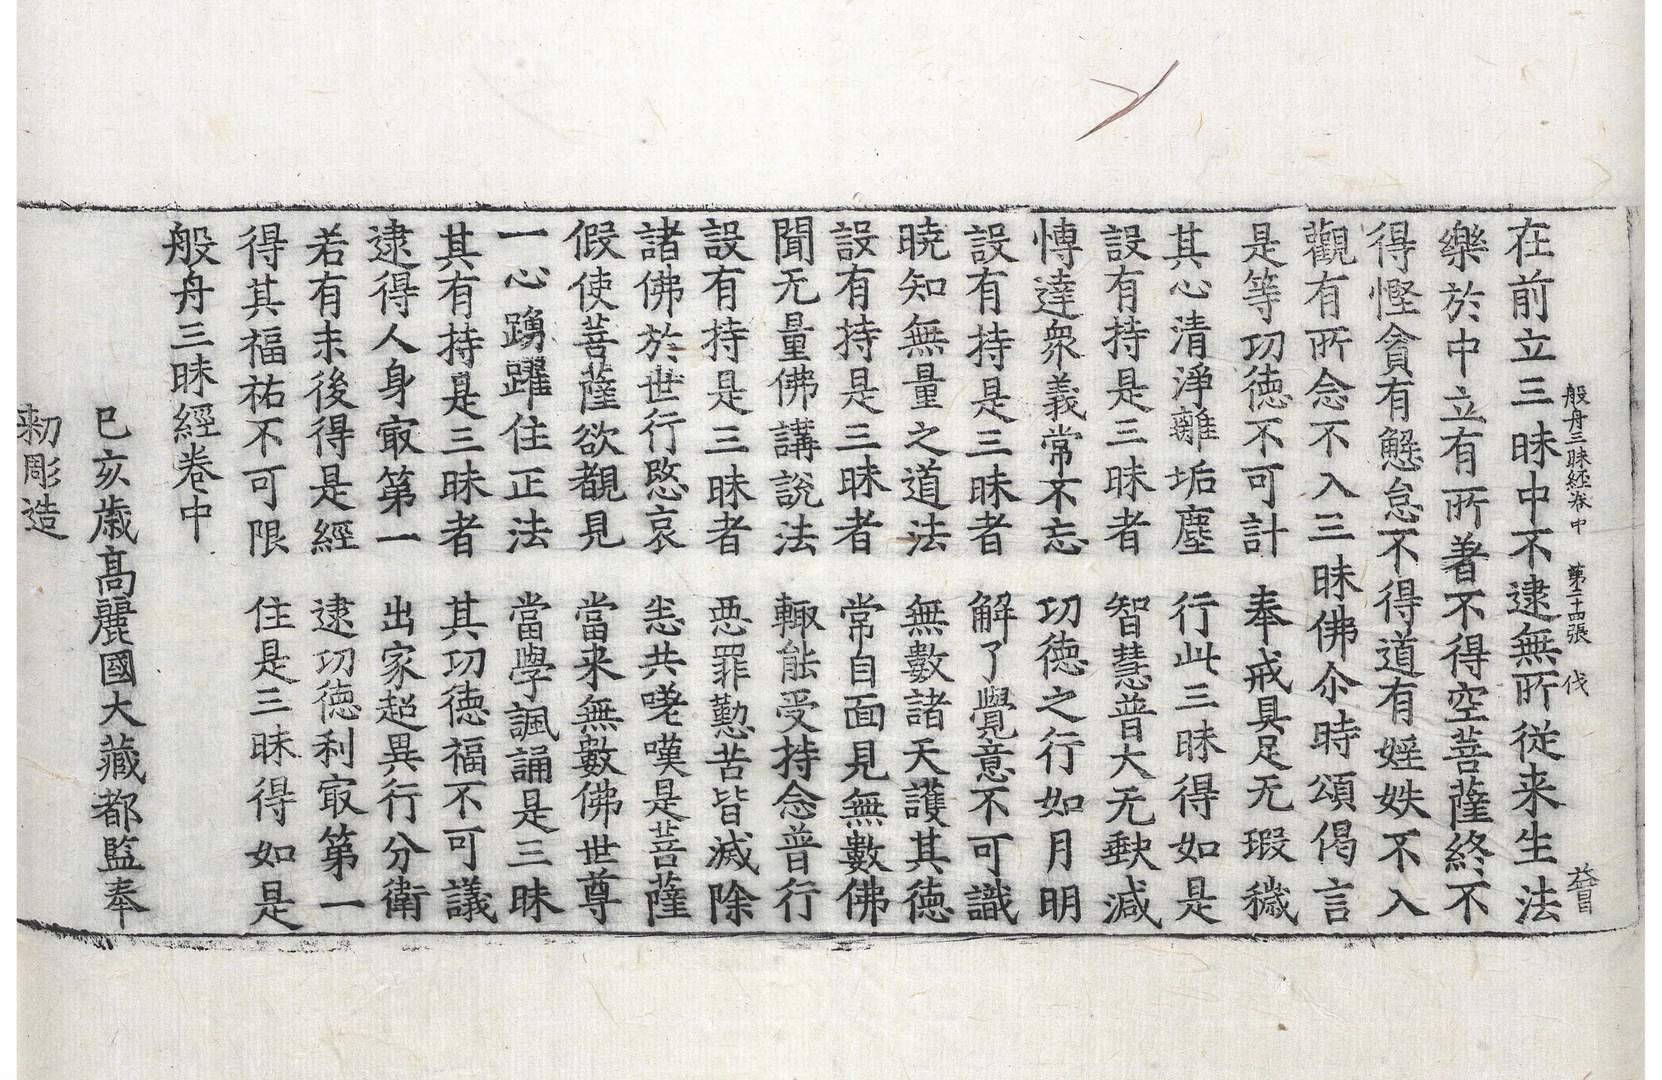 般舟三昧經卷中 第二十四張 伐
在前立三昧中不逮無所從来生法
樂於中立有所著不得空菩薩終不
得慳貪有懈怠不得道有婬妷不入
觀有所念不入三昧佛尒時頌偈言
是等功德不可計 奉戒具足无瑕穢
其心清淨離垢塵 行此三昧得如是
設有持是三昧者 智慧普大无缺減
愽達衆義常不忘 功德之行如月明
設有持是三昧者 解了覺意不可識
曉知無量之道法 無數諸天護其德
設有持是三昧者 常自面見無數佛
聞无量佛講說法 輙能受持念普行
設有持是三昧者 惡罪勤苦皆滅除
諸佛於世行愍哀 悉共嗟嘆是菩薩
假使菩薩欲覩見 當来無數佛世尊
一心踴躍住正法 當學諷誦是三昧
其有持是三昧者 其功德福不可議
逮得人身㝡第一 出家超異行分衛
若有末後得是經 逮功德利㝡第一
得其福祐不可限 住是三昧得如是
般舟三昧經卷中
己亥歲高麗國大藏都監奉
勅彫造